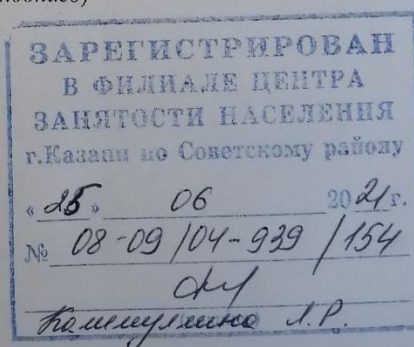 ЗАРЕГИСТРИРОВАН
В ФИЛИАЛЕ ЦЕНТРА
ЗАНЯТОСТИ НАСЕЛЕНИЯ
г.Казани по Советскому району
«25» 06 2021 г.
№ 08-09/04-939/154
Л.Р.